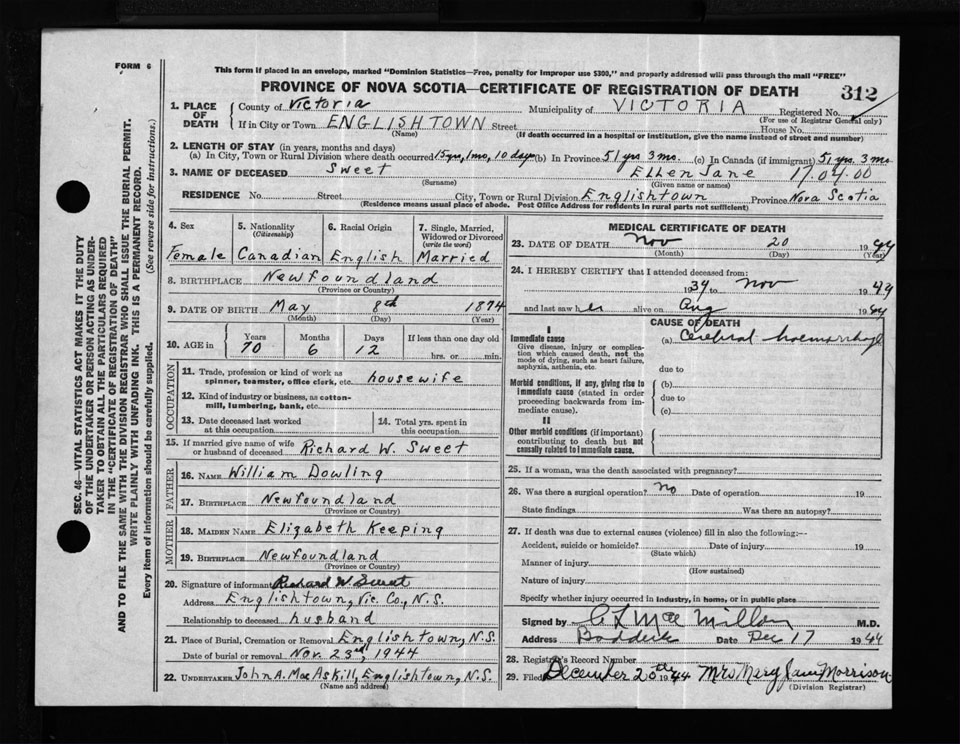 FORM 6
This form if placed in an envelope, marked "Dominion Statistics—Free, penalty for improper use $300," and properly addressed will pass through the mail "FREE"
PROVINCE OF NOVA SCOTIA—CERTIFICATE OF REGISTRATION OF DEATH
312
1. PLACE OF DEATH
County of Victoria Municipality of VICTORIA Registered No.
(For use of Registrar General only)
If in City or Town ENGLISHTOWN Street House No.
(Name) (If death occurred in a hospital or institution, give the name instead of street and number)
2. LENGTH OF STAY (in years, months and days)
(a) In City, Town or Rural Division where death occurred 15 yrs, 1 mo, 10 days (b) In Province 51 yrs 3 mo. (c) In Canada (if immigrant) 51 yrs. 3 mo.
3. NAME OF DECEASED Sweet Ellen Jane 17.04.00
(Surname) (Given name or names)
RESIDENCE No. Street City, Town or Rural Division Englishtown Province Nova Scotia
(Residence means usual place of abode. Post Office Address for residents in rural parts not sufficient)
4. Sex
Female
5. Nationality
(Citizenship)
Canadian
6. Racial Origin
English
7. Single, Married, Widowed or Divorced
(write the word)
Married
8. BIRTHPLACE Newfoundland
(Province or Country)
9. DATE OF BIRTH May 8th 1874
(Month) (Day) (Year)
10. AGE in Years Months Days If less than one day old
70 6 12 hrs. or min.
OCCUPATION
11. Trade, profession or kind of work as
spinner, teamster, office clerk, etc. housewife
12. Kind of industry or business, as cotton-
mill, lumbering, bank, etc.
13. Date deceased last worked
at this occupation
14. Total yrs. spent in
this occupation
15. If married give name of wife
or husband of deceased Richard W. Sweet
FATHER
16. NAME William Dowling
17. BIRTHPLACE Newfoundland
(Province or Country)
MOTHER
18. MAIDEN NAME Elizabeth Keeping
19. BIRTHPLACE Newfoundland
(Province or Country)
20. Signature of informant Richard W Sweet
Address Englishtown, Vic. Co., N.S.
Relationship to deceased husband
21. Place of Burial, Cremation or Removal Englishtown, N.S.
Date of burial or removal Nov. 23rd, 1944
22. UNDERTAKER John A. MacAskill, Englishtown, N.S.
(Name and address)
MEDICAL CERTIFICATE OF DEATH
23. DATE OF DEATH Nov 20 1944
(Month) (Day) (Year)
24. I HEREBY CERTIFY that I attended deceased from:
1939 to Nov 1944
and last saw her alive on Aug 1944
CAUSE OF DEATH
I
Immediate cause
Give disease, injury or complica-
tion which caused death, not the
mode of dying, such as heart failure,
asphyxia, asthenia, etc.
(a) Cerebral haemorrhage
due to
Morbid conditions, if any, giving rise to
immediate cause (stated in order
proceeding backwards from im-
mediate cause).
(b)
due to
(c)
II
Other morbid conditions (if important)
contributing to death but not
causally related to immediate cause.
25. If a woman, was the death associated with pregnancy?
26. Was there a surgical operation? no Date of operation 19
State findings Was there an autopsy?
27. If death was due to external causes (violence) fill in also the following:—
Accident, suicide or homicide? Date of injury 19
(State which)
Manner of injury
(How sustained)
Nature of injury
Specify whether injury occurred in industry, in home, or in public place
Signed by C L MacMillan M.D.
Address Baddeck Date Dec 17 1944
28. Registrar's Record Number
29. Filed December 20th 1944 Mrs Mary Jane Morrison
(Division Registrar)
SEC. 46—VITAL STATISTICS ACT MAKES IT THE DUTY
OF THE UNDERTAKER OR PERSON ACTING AS UNDER-
TAKER TO OBTAIN ALL THE PARTICULARS REQUIRED
IN THE "CERTIFICATE OF REGISTRATION OF DEATH"
AND TO FILE THE SAME WITH THE DIVISION REGISTRAR WHO SHALL ISSUE THE BURIAL PERMIT.
WRITE PLAINLY WITH UNFADING INK. THIS IS A PERMANENT RECORD.
Every item of information should be carefully supplied. (See reverse side for instructions.)